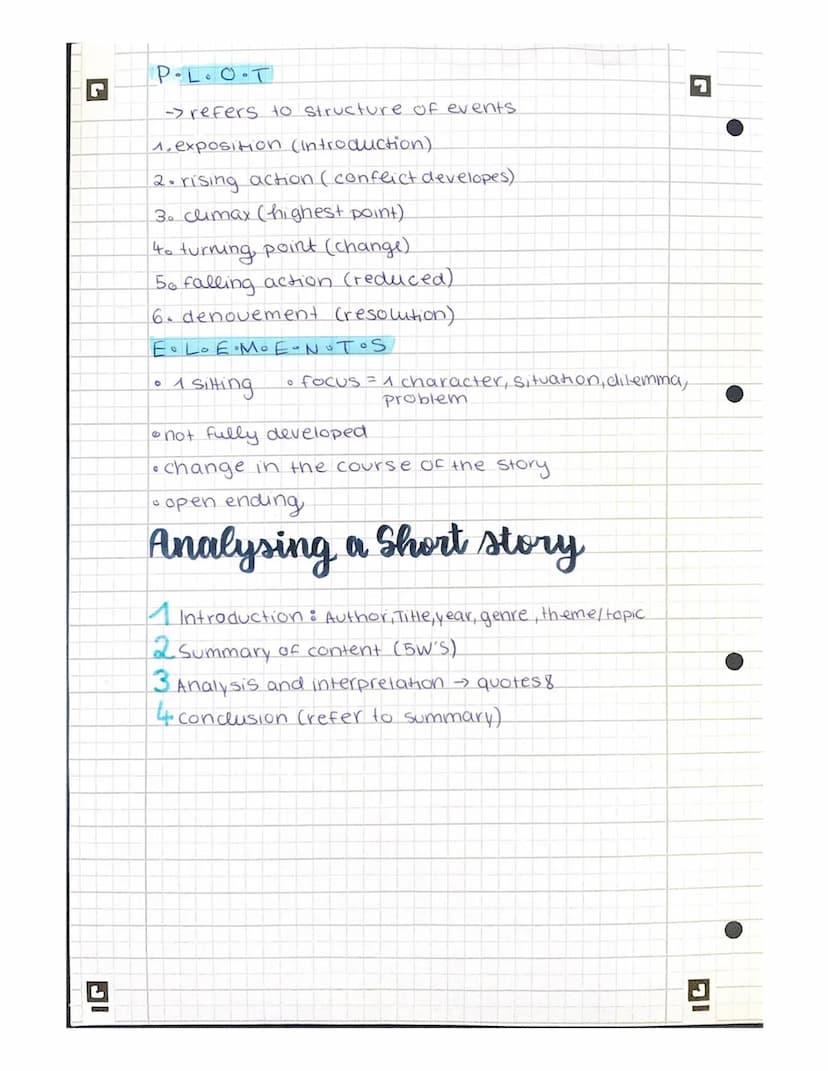 P.L.O.T
-> refers to structure of events
1. exposition (introduction)
2. rising action (conflict developes)
3. climax (highest point)
4. turning point (change)
5. falling action (reduced)
6. denouement (resolution)
E.L.E.M.E.N.T.S
• 1 sitting • focus = 1 character, situation, dilemma,
problem
• not fully developed
• change in the course of the story
• open ending
Analysing a Short story
1 Introduction: Author, Title, year, genre, theme/topic
2 Summary of content (5W's)
3 Analysis and interpretation → quotes
4 conclusion (refer to summary)